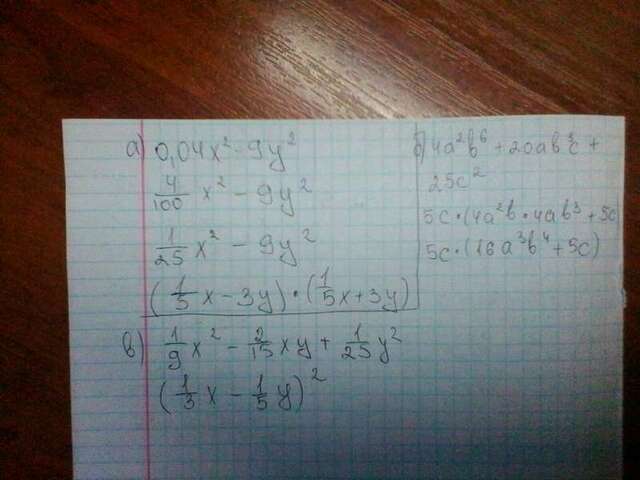 а) 0,04x² - 9y²
4/100 x² - 9y²
1/25 x² - 9y²
(1/5 x - 3y) · (1/5 x + 3y)
б) 4a²b⁶ + 20ab³c +
25c²
5c · (4a²b · 4ab³ + 5c)
5c · (16a³b⁴ + 5c)
в) 1/9 x² - 2/15 xy + 1/25 y²
(1/3 x - 1/5 y)²